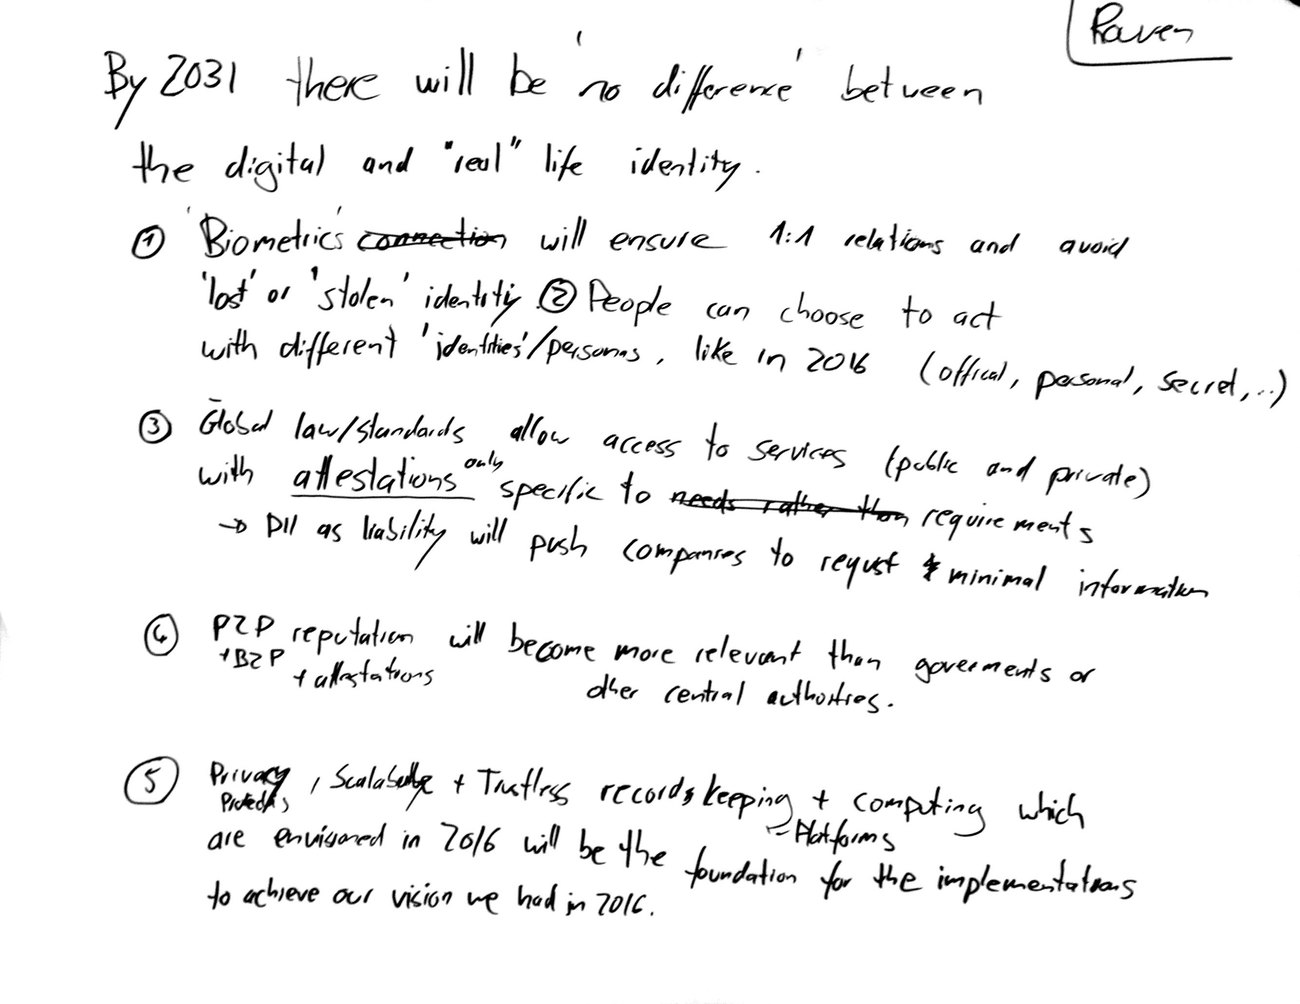 Raven
By 2031 there will be 'no difference' between
the digital and "real" life identity.
① 'Biometrics' connection will ensure 1:1 relations and avoid
'lost' or 'stolen' identity ② People can choose to act
with different 'identities'/personas, like in 2016 (offical, personal, secret, ..)
③ Global law/standards allow access to services (public and private)
with attestations only specific to needs rather than requirements
→ PII as liability will push companies to requst minimal information
④ P2P reputation will become more relevant than goverments or
+B2P + attestations other central authorities.
⑤ Privacy , Scalable + Trustless records keeping + computing which
= Platforms
are envisioned in 2016 will be the foundation for the implementations
to achieve our vision we had in 2016.